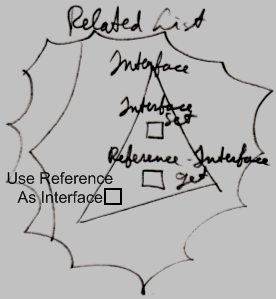 Related List
Interface
Interface
Set
Reference-Interface
get
Use Reference
As Interface